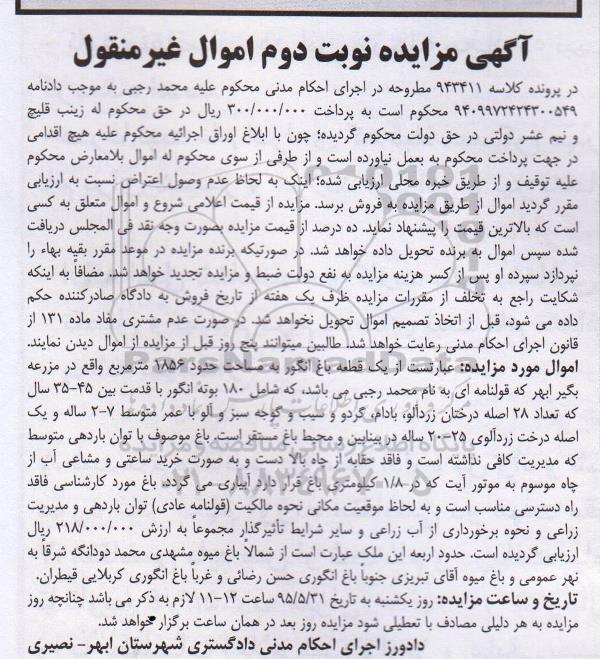 آگهی مزایده نوبت دوم اموال غیرمنقول
در پرونده کلاسه ۹۴۳۴۱۱ مطروحه در اجرای احکام مدنی محکوم علیه محمد رجبی به موجب دادنامه
۹۴۰۹۹۷۲۴۲۴۳۰۰۵۴۹ محکوم است به پرداخت ۳۰۰/۰۰۰/۰۰۰ ریال در حق محکوم له زینب قلیچ
و نیم عشر دولتی در حق دولت محکوم گردیده؛ چون با ابلاغ اوراق اجرائیه محکوم علیه هیچ اقدامی
در جهت پرداخت محکوم به بعمل نیاورده است و از طرفی از سوی محکوم له اموال بلامعارض محکوم
علیه توقیف و از طریق خبره محلی ارزیابی شده؛ اینک به لحاظ عدم وصول اعتراض نسبت به ارزیابی
مقرر گردید اموال از طریق مزایده به فروش برسد. مزایده از قیمت اعلامی شروع و اموال متعلق به کسی
است که بالاترین قیمت را پیشنهاد نماید. ده درصد از قیمت مزایده بصورت وجه نقد فی المجلس دریافت
شده سپس اموال به برنده تحویل داده خواهد شد. در صورتیکه برنده مزایده در موعد مقرر بقیه بهاء را
نپردازد سپرده او پس از کسر هزینه مزایده به نفع دولت ضبط و مزایده تجدید خواهد شد. مضافاً به اینکه
شکایت راجع به تخلف از مقررات مزایده ظرف یک هفته از تاریخ فروش به دادگاه صادرکننده حکم
داده می شود، قبل از اتخاذ تصمیم اموال تحویل نخواهد شد. در صورت عدم مشتری مفاد ماده ۱۳۱ از
قانون اجرای احکام مدنی رعایت خواهد شد. طالبین میتوانند پنج روز قبل از مزایده از اموال دیدن نمایند.
اموال مورد مزایده: عبارتست از یک قطعه باغ انگور به مساحت حدود ۱۸۵۶ مترمربع واقع در مزرعه
بگیر ابهر که قولنامه ای به نام محمد رجبی می باشد، که شامل ۱۸۰ بوته انگور با قدمت بین ۴۵-۳۵ سال
که تعداد ۲۸ اصله درختان زردآلو، بادام، گردو و سیب و گوجه سبز و آلو با عمر متوسط ۷-۲ ساله و یک
اصله درخت زردآلوی ۲۵-۲۰ ساله در بینابین و محیط باغ مستقر است. باغ موصوف با توان باردهی متوسط
که مدیریت کافی نداشته است و فاقد حقابه از چاه بالا دست و به صورت خرید ساعتی و مشاعی آب از
چاه موسوم به موتور آیت که در ۱/۸ کیلومتری باغ قرار دارد آبیاری می گردد. باغ مورد کارشناسی فاقد
راه دسترسی مناسب است و به لحاظ موقعیت مکانی نحوه مالکیت (قولنامه عادی) توان باردهی و مدیریت
زراعی و نحوه برخورداری از آب زراعی و سایر شرایط تأثیرگذار مجموعاً به ارزش ۲۱۸/۰۰۰/۰۰۰ ریال
ارزیابی گردیده است. حدود اربعه این ملک عبارت است از شمالاً باغ میوه مشهدی محمد دودانگه شرقاً به
نهر عمومی و باغ میوه آقای تبریزی جنوباً باغ انگوری حسن رضائی و غرباً باغ انگوری کربلایی قیطران.
تاریخ و ساعت مزایده: روز یکشنبه به تاریخ ۹۵/۵/۳۱ ساعت ۱۲-۱۱ لازم به ذکر می باشد چنانچه روز
مزایده به هر دلیلی مصادف با تعطیلی شود مزایده روز بعد در همان ساعت برگزار خواهد شد.
دادورز اجرای احکام مدنی دادگستری شهرستان ابهر- نصیری
ParsNamadData